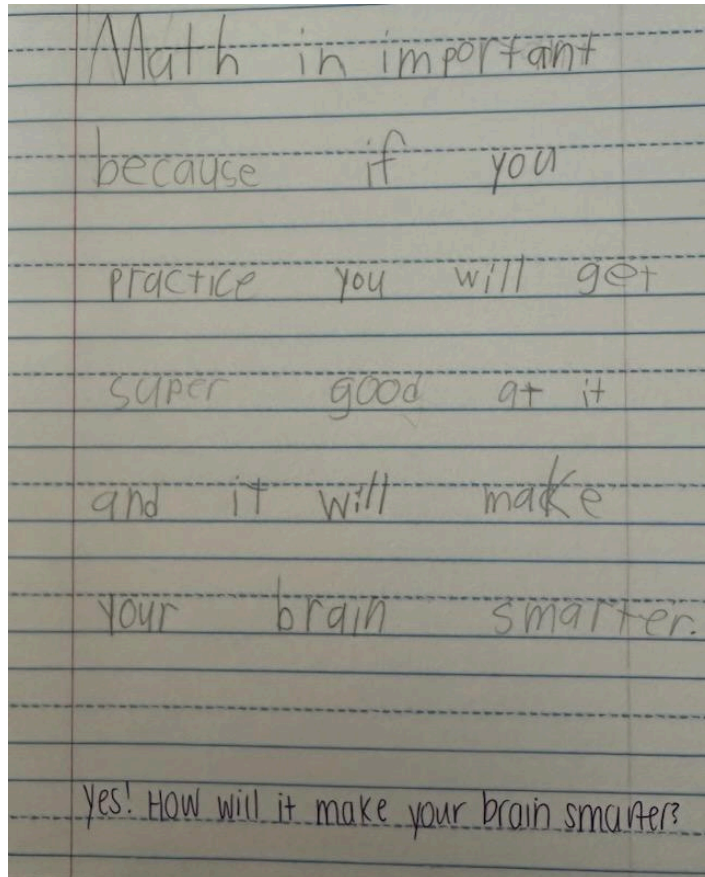 Math in important
because if you
practice you will get
super good at it
and it will make
your brain smarter.
yes! How will it make your brain smarter?